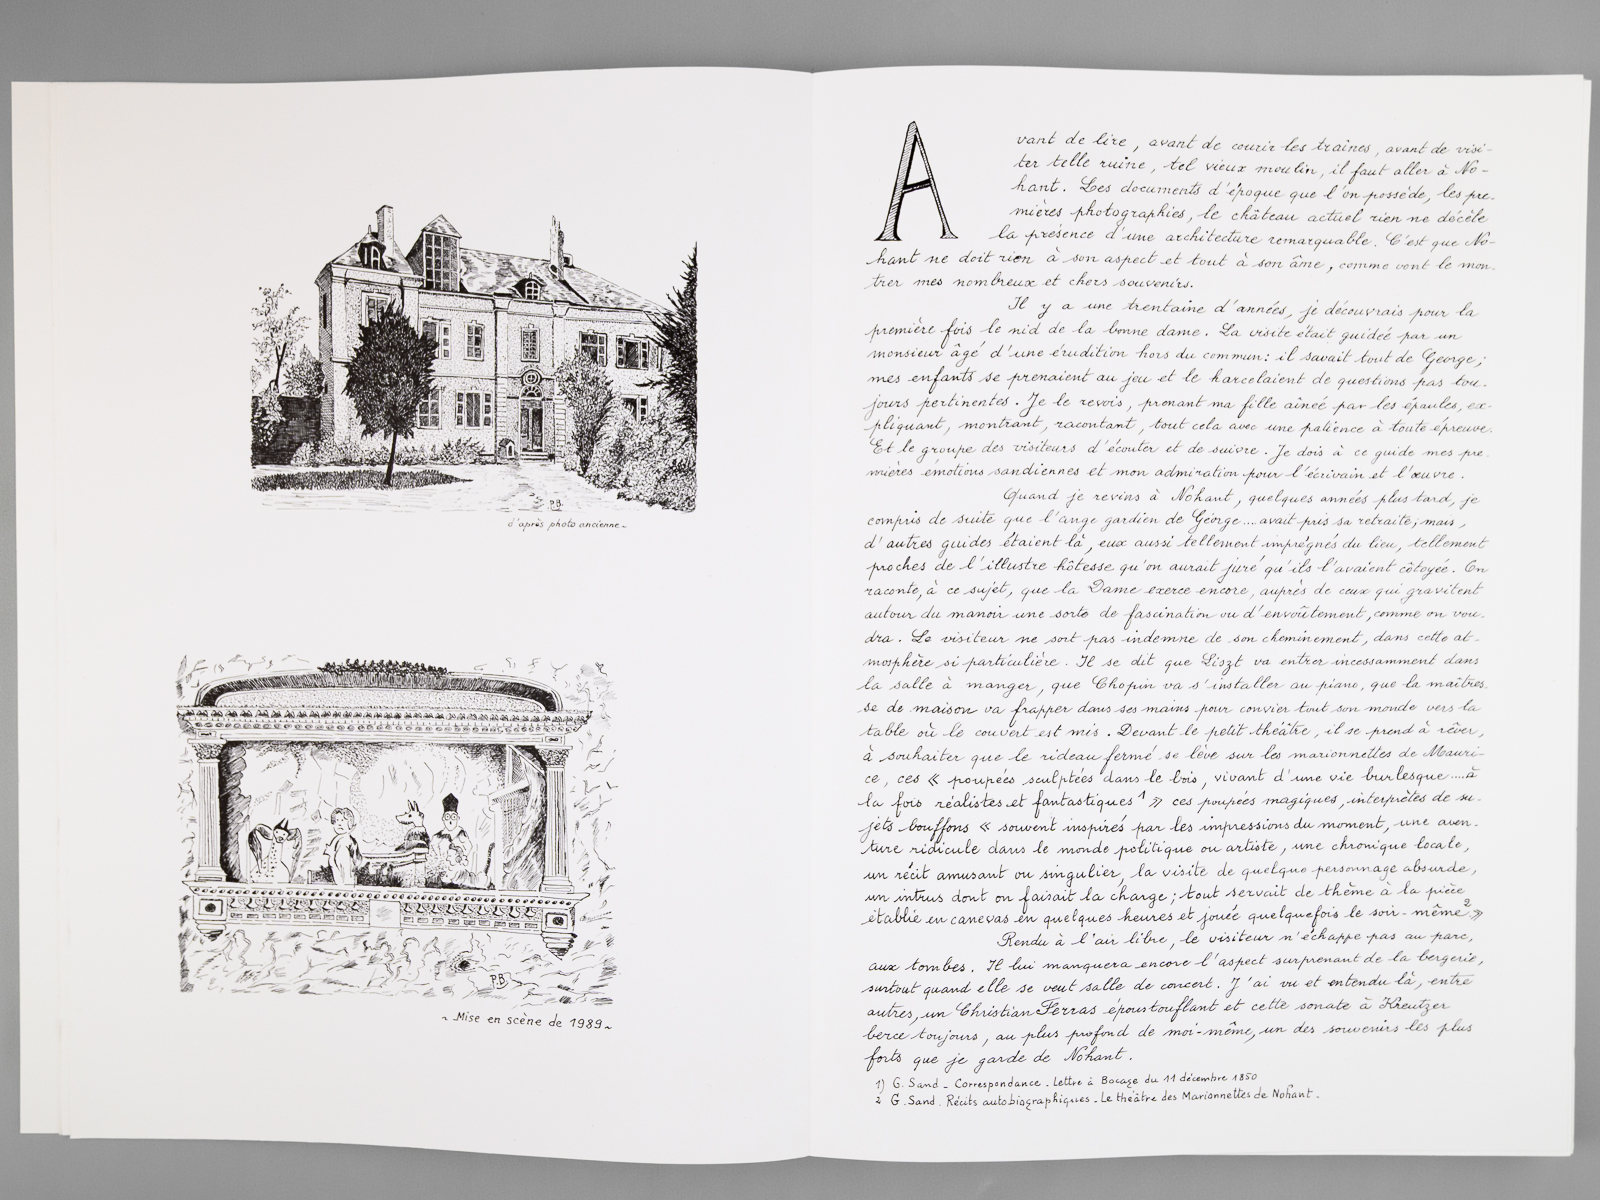 P.B.
d'après photo ancienne -
P.B.
~ Mise en scène de 1989 ~
Avant de lire, avant de courir les traînes, avant de visi-
ter telle ruine, tel vieux moulin, il faut aller à No-
hant. Les documents d'époque que l'on possède, les pre-
mières photographies, le château actuel rien ne décèle
la présence d'une architecture remarquable. C'est que No-
hant ne doit rien à son aspect et tout à son âme, comme vont le mon-
trer mes nombreux et chers souvenirs.
Il y a une trentaine d'années, je découvrais pour la
première fois le nid de la bonne dame. La visite était guidée par un
monsieur âgé d'une érudition hors du commun: il savait tout de George;
mes enfants se prenaient au jeu et le harcelaient de questions pas tou-
jours pertinentes. Je le revois, prenant ma fille aînée par les épaules, ex-
pliquant, montrant, racontant, tout cela avec une patience à toute épreuve.
Et le groupe des visiteurs d'écouter et de suivre. Je dois à ce guide mes pre-
mières émotions sandiennes et mon admiration pour l'écrivain et l'œuvre.
Quand je revins à Nohant, quelques années plus tard, je
compris de suite que l'ange gardien de George.... avait pris sa retraite; mais,
d'autres guides étaient là, eux aussi tellement imprégnés du lieu, tellement
proches de l'illustre hôtesse qu'on aurait juré qu'ils l'avaient côtoyée. On
raconte, à ce sujet, que la Dame exerce encore, auprès de ceux qui gravitent
autour du manoir une sorte de fascination ou d'envoûtement, comme on vou-
dra. Le visiteur ne sort pas indemne de son cheminement, dans cette at-
mosphère si particulière. Il se dit que Liszt va entrer incessamment dans
la salle à manger, que Chopin va s'installer au piano, que la maîtres-
se de maison va frapper dans ses mains pour convier tout son monde vers la
table où le couvert est mis. Devant le petit théâtre, il se prend à rêver,
à souhaiter que le rideau fermé se lève sur les marionnettes de Mauri-
ce, ces « poupées sculptées dans le bois, vivant d'une vie burlesque .... à
la fois réalistes et fantastiques 1 » ces poupées magiques, interprètes de su-
jets bouffons « souvent inspirés par les impressions du moment, une aven-
ture ridicule dans le monde politique ou artiste, une chronique locale,
un récit amusant ou singulier, la visite de quelque personnage absurde,
un intrus dont on faisait la charge; tout servait de thème à la pièce
établie en canevas en quelques heures et jouée quelquefois le soir-même 2 »
Rendu à l'air libre, le visiteur n'échappe pas au parc,
aux tombes. Il lui manquera encore l'aspect surprenant de la bergerie,
surtout quand elle se veut salle de concert. J'ai vu et entendu là, entre
autres, un Christian Ferras époustouflant et cette sonate à Kreutzer
berce toujours, au plus profond de moi-même, un des souvenirs les plus
forts que je garde de Nohant.
1) G. Sand - Correspondance. Lettre à Bocage du 11 décembre 1850
2 G. Sand. Récits autobiographiques - Le théâtre des Marionnettes de Nohant.